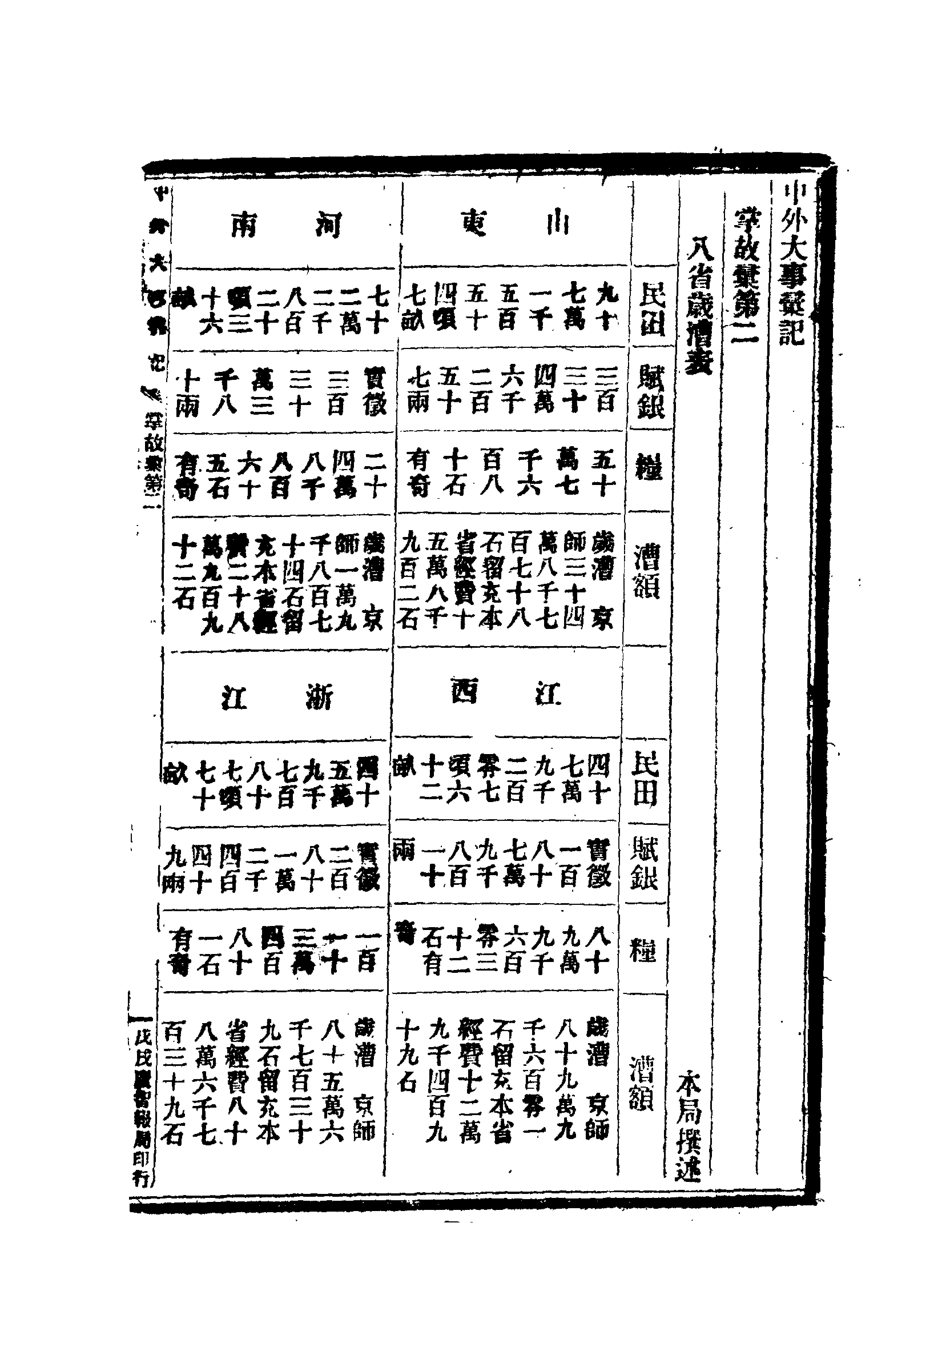 中外大事彙記
掌故彙第二
八省歲漕表
本局撰述
民田
賦銀
糧
漕額
民田
賦銀
糧
漕額
山東
九十
七萬
一千
五百
五十
四頃
七畝
三百
三十
四萬
六千
二百
五十
七兩
五十
萬七
千六
百八
十石
有奇
歲漕 京
師三十四
萬八千七
百七十八
石留充本
省經費十
五萬八千
九百二石
江西
四十
七萬
九千
二百
零七
頃六
十二
畝
實徵
一百
八十
七萬
九千
八百
一十
兩
八十
九萬
九千
六百
零三
十二
石有
奇
歲漕 京師
八十九萬九
千六百零一
石留充本省
經費十二萬
九千四百九
十九石
河南
七十
二萬
二千
八百
二十
頃三
十六
畝
實徵
三百
三十
萬三
千八
十兩
二十
四萬
八千
八百
六十
五石
有奇
歲漕 京
師一萬九
千八百七
十四石留
充本省經
費二十八
萬九百九
十二石
浙江
四十
五萬
九千
七百
八十
七頃
七十
畝
實徵
二百
八十
一萬
二千
四百
四十
九兩
一百
一十
三萬
四百
八十
一石
有奇
歲漕 京師
八十五萬六
千七百三十
九石留充本
省經費八十
八萬六千七
百三十九石
中外大事彙記 掌故彙第二
戊戌廣智報局印行